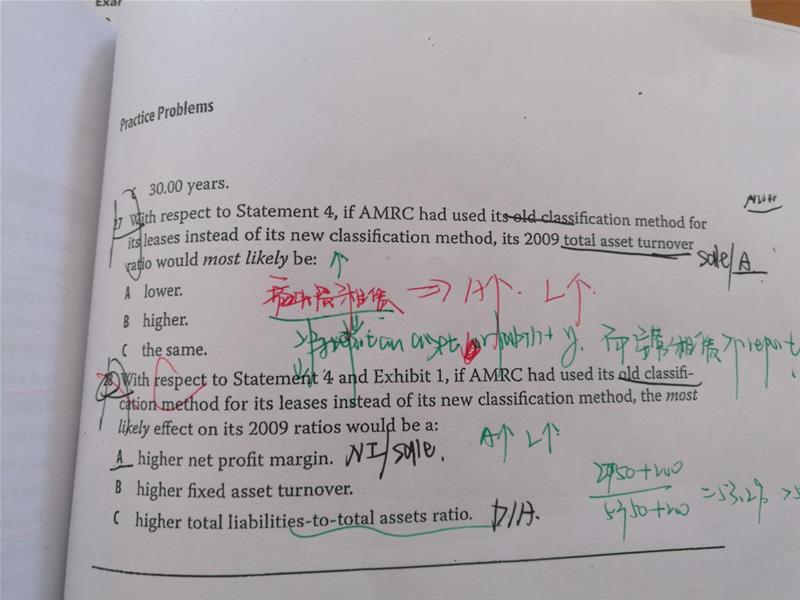 Exar
Practice Problems
30.00 years.
27 With respect to Statement 4, if AMRC had used its old classification method for
its leases instead of its new classification method, its 2009 total asset turnover
sale/A
ratio would most likely be: ↑
A lower.
⇒ A↑. L↑.
B higher.
C the same.
28 With respect to Statement 4 and Exhibit 1, if AMRC had used its old classifi-
cation method for its leases instead of its new classification method, the most
likely effect on its 2009 ratios would be a:
A↑ L↑
A higher net profit margin. NI/sale.
B higher fixed asset turnover.
C higher total liabilities-to-total assets ratio. D/A.
2950+200
5950+200
=53.2% >5